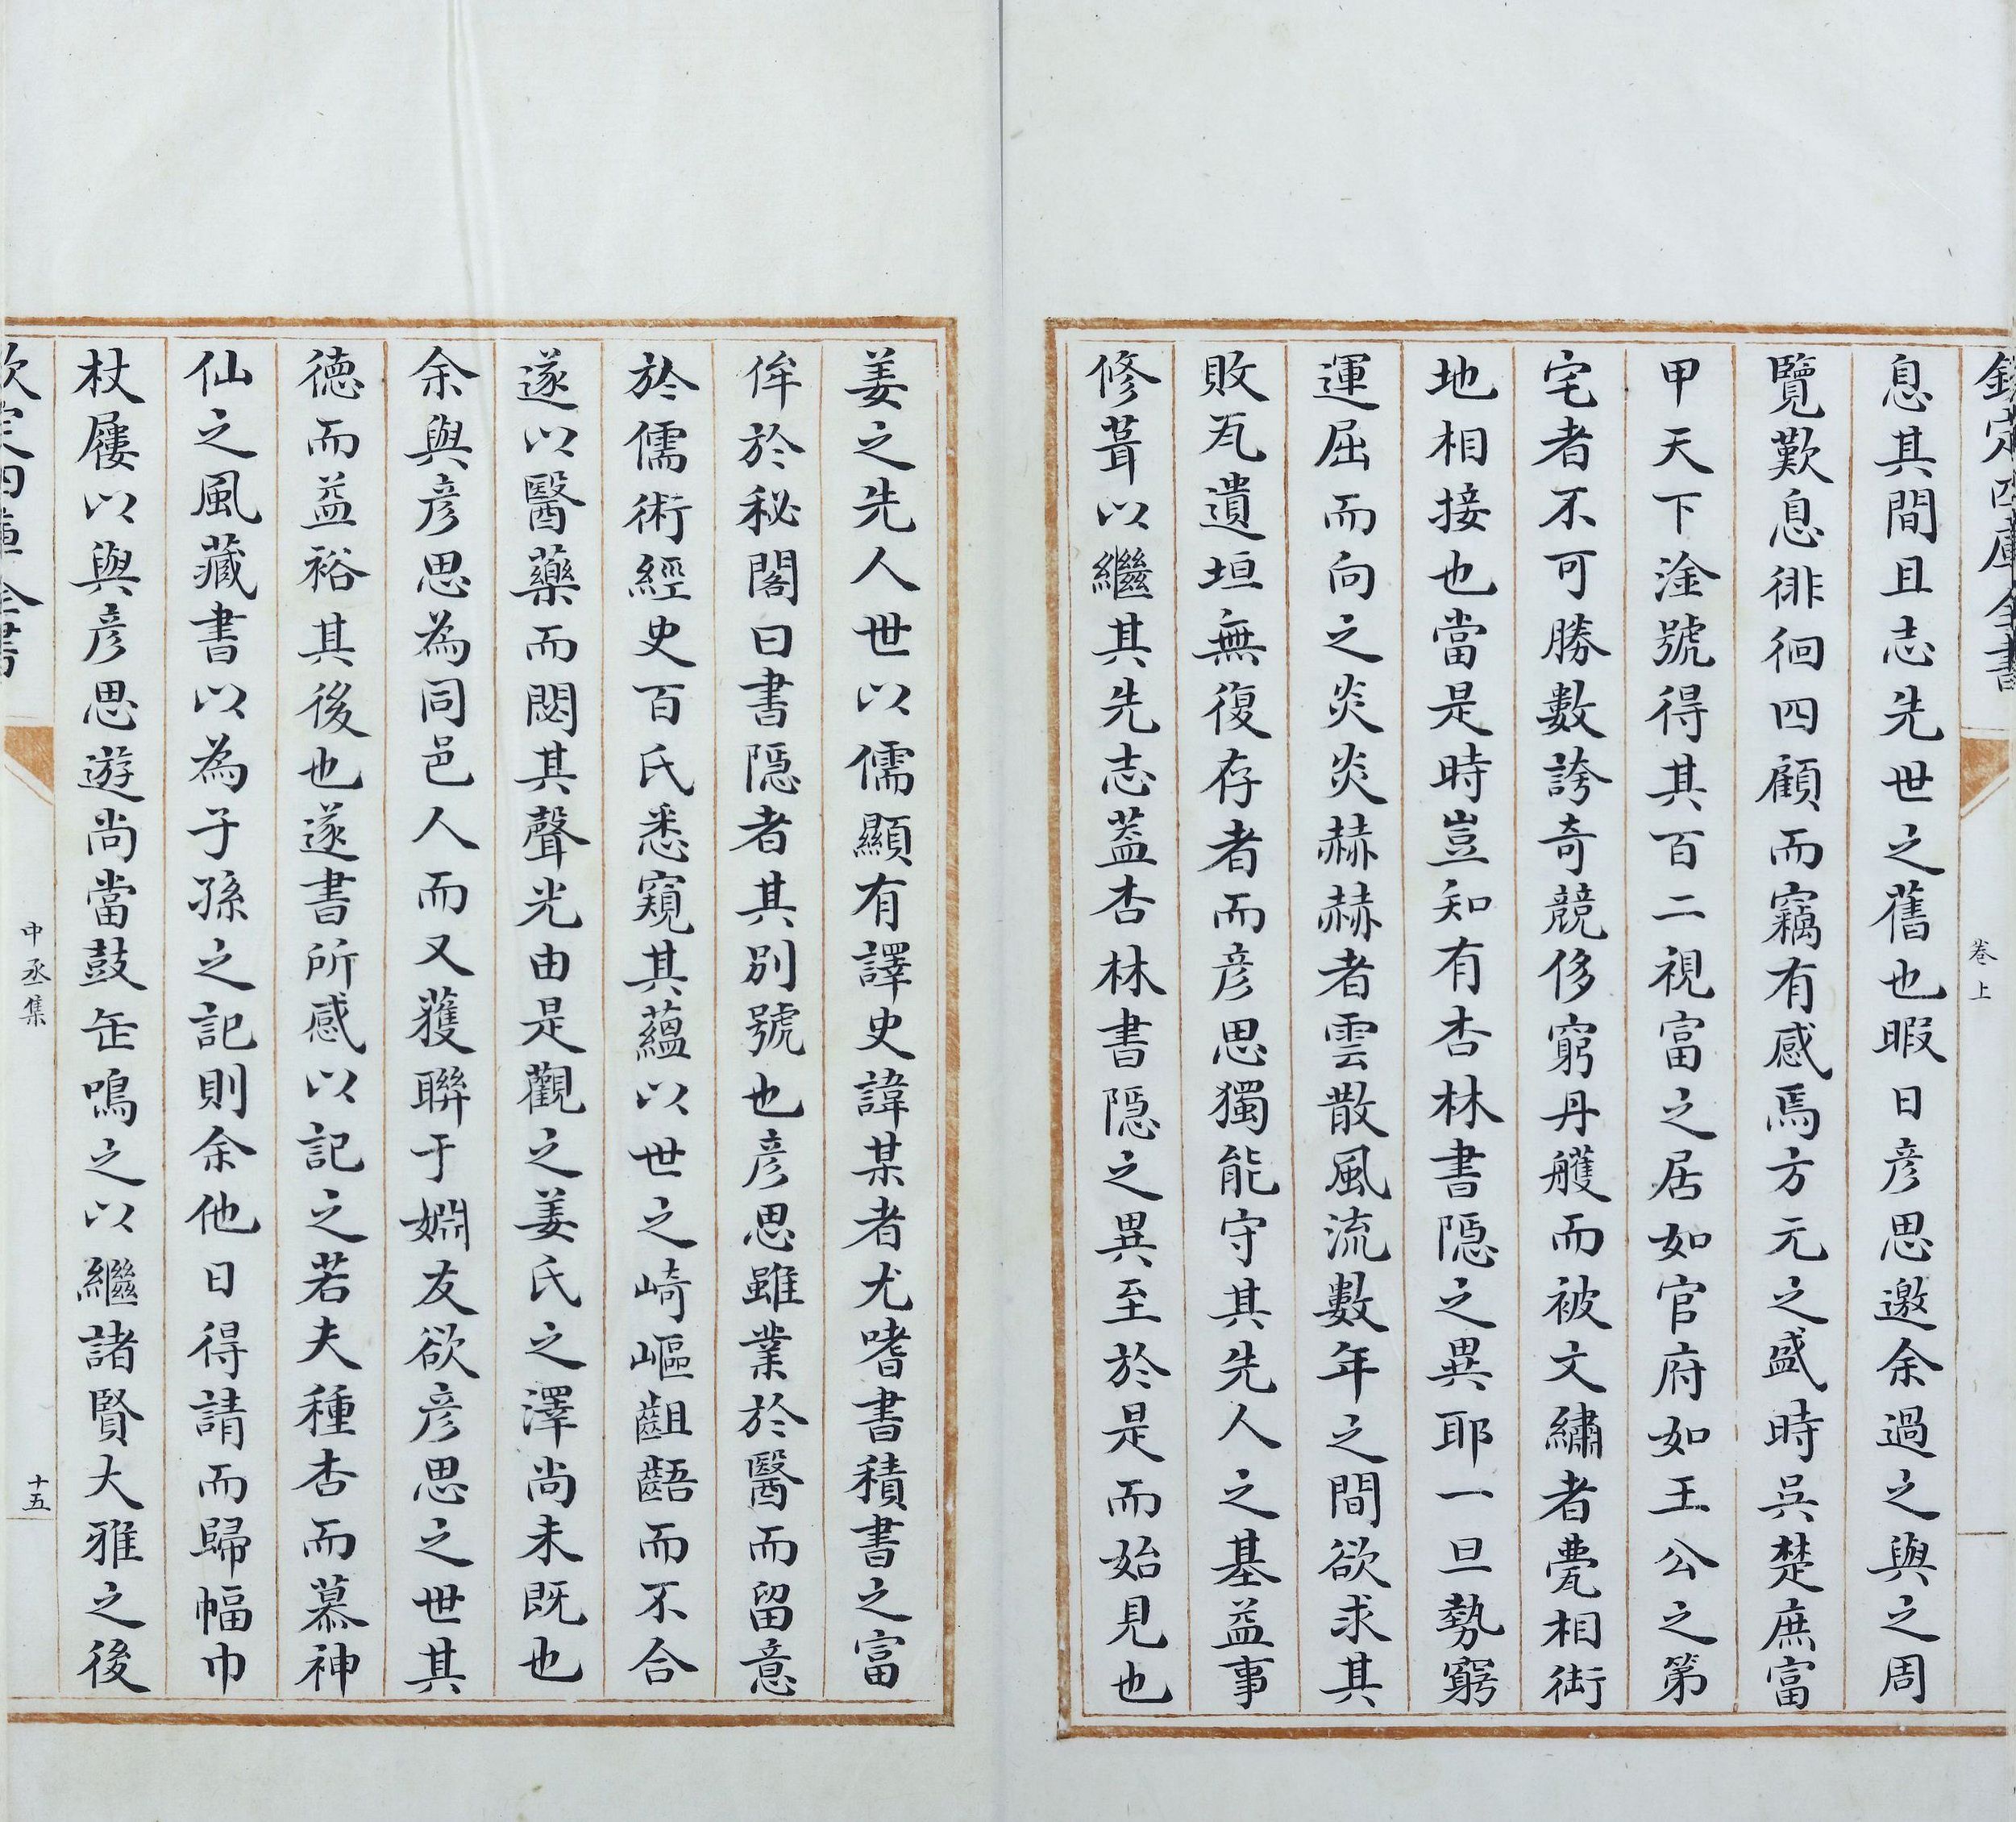 欽定四庫全書
卷上
息其間且志先世之舊也暇日彦思邀余過之與之周
覽歎息徘徊四顧而竊有感焉方元之盛時呉楚庶富
甲天下淦號得其百二視富之居如官府如王公之第
宅者不可勝數誇奇競侈窮丹艧而被文繡者甍相衘
地相接也當是時豈知有杏林書隠之異耶一旦勢窮
運屈而向之炎炎赫赫者雲散風流數年之間欲求其
敗瓦遺垣無復存者而彦思獨能守其先人之基益事
修葺以繼其先志葢杏林書隠之異至於是而始見也
姜之先人世以儒顯有譯史諱某者尤嗜書積書之富
侔於秘閣曰書隠者其別號也彦思雖業於醫而留意
於儒術經史百氏悉窺其藴以世之崎嶇齟齬而不合
遂以醫藥而閟其聲光由是觀之姜氏之澤尚未既也
余與彦思為同邑人而又獲聯于婣友欲彦思之世其
徳而益裕其後也遂書所感以記之若夫種杏而慕神
仙之風藏書以為子孫之記則余他日得請而歸幅巾
杖屨以與彦思遊尚當鼓缶鳴之以繼諸賢大雅之後
欽定四庫全書
中丞集
十五